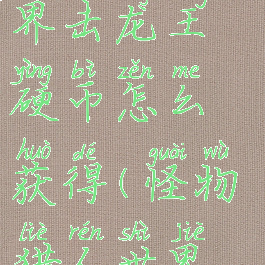 界击龙王
yìng bì zěn me
硬币怎么
huò dé guài wù
获得(怪物
liè rén shì jiè
猎人世界